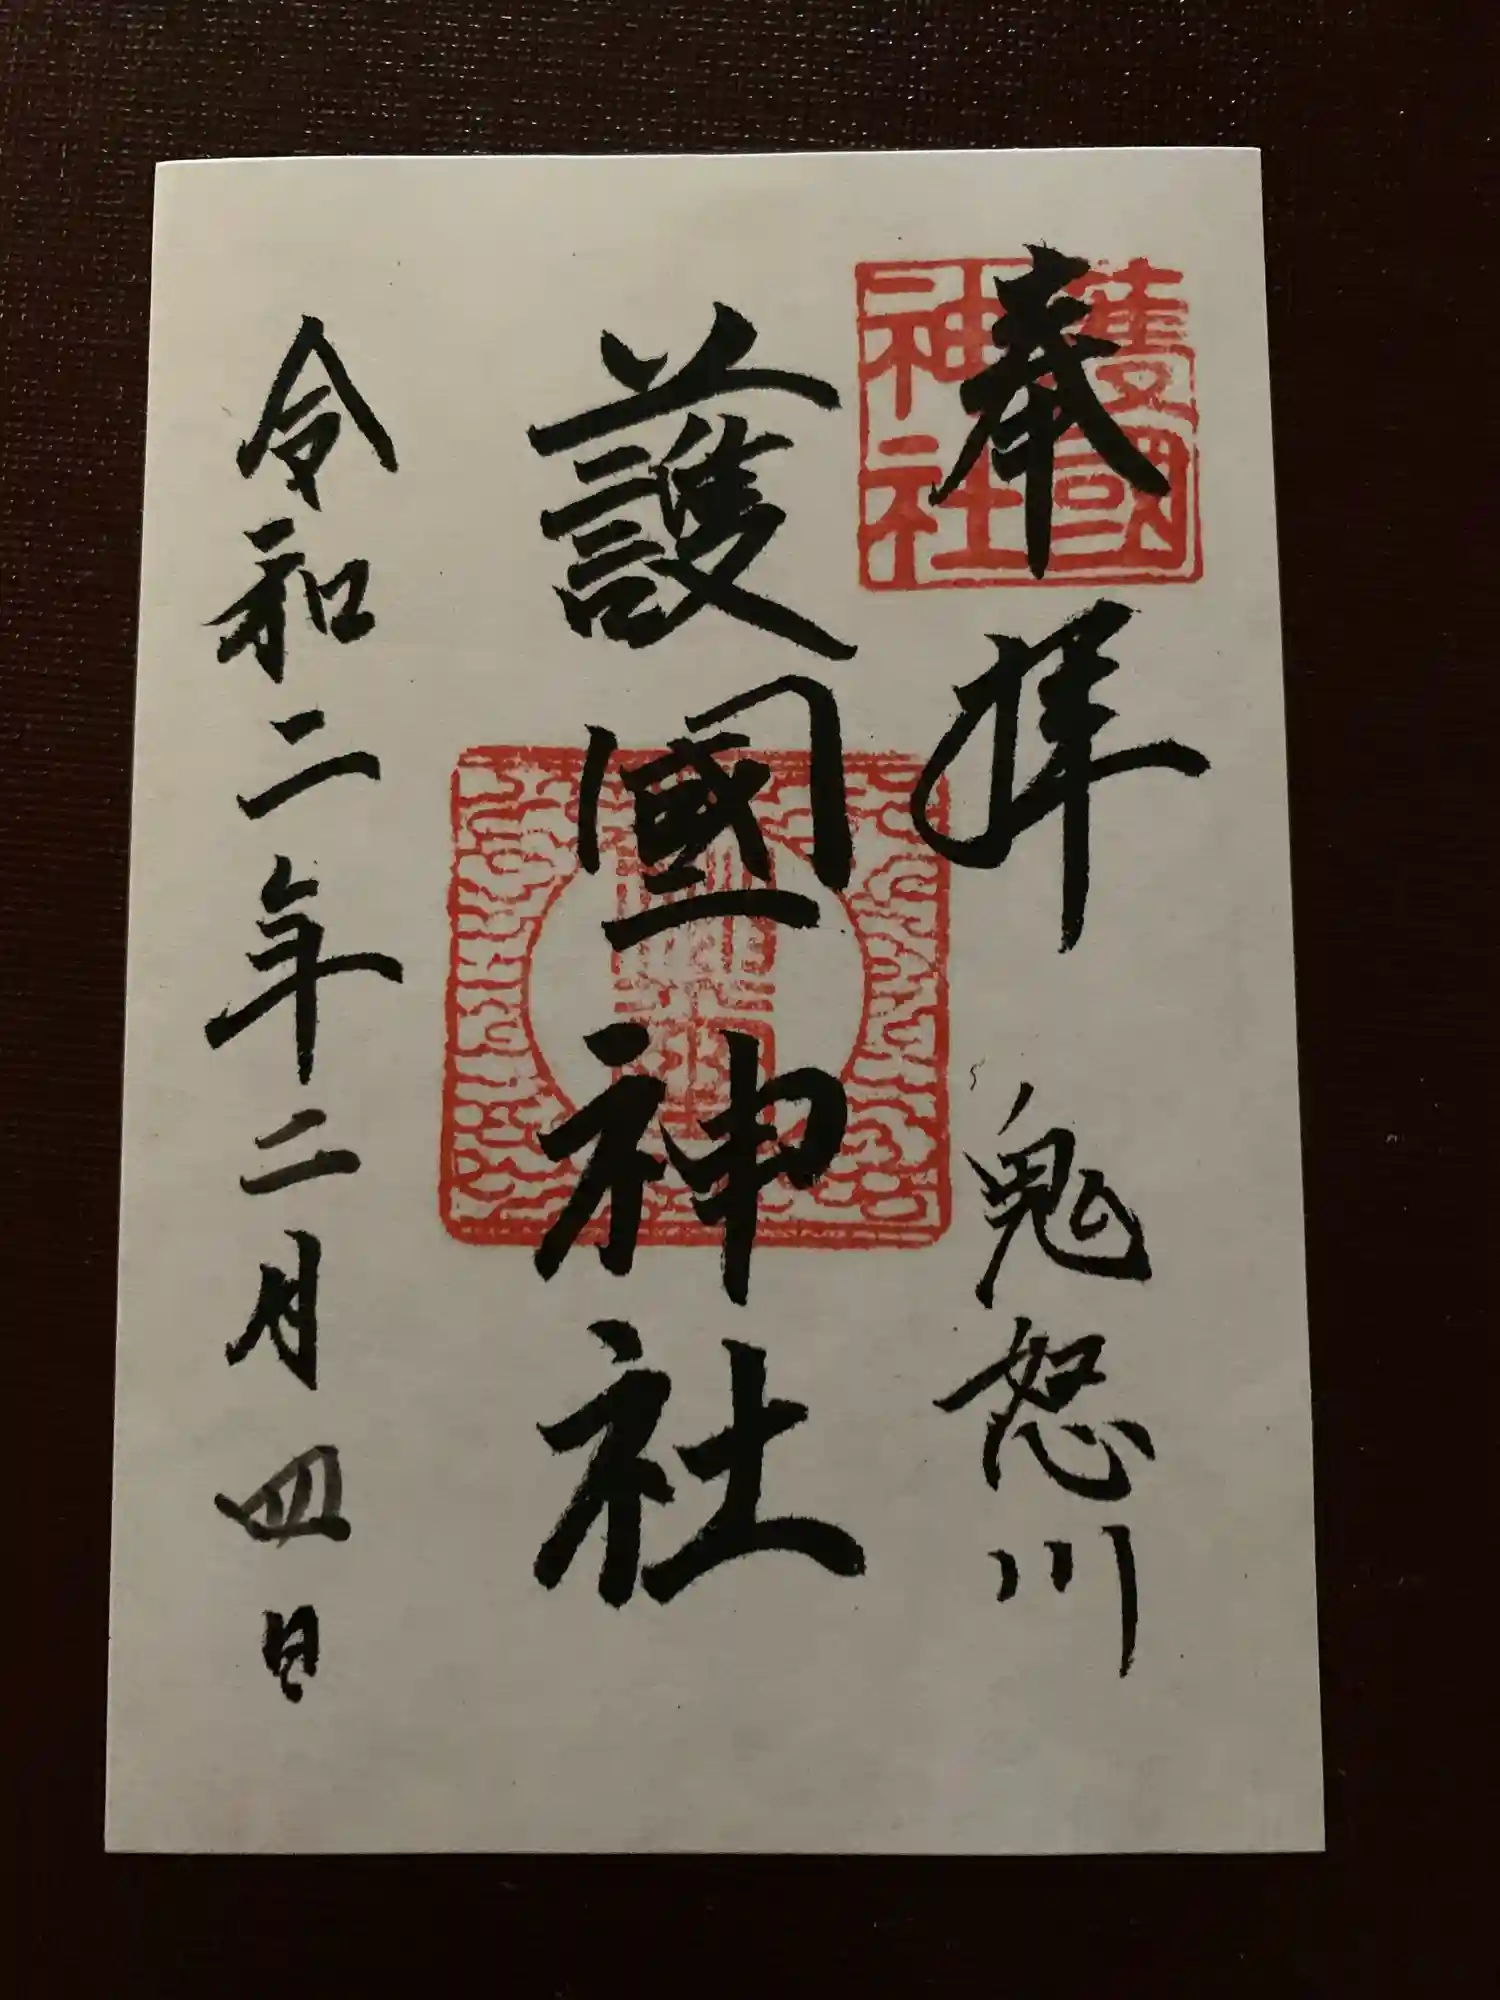 奉拝 鬼怒川
護國神社
護國神社
令和二年二月四日